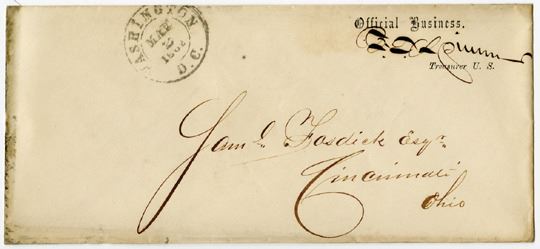 WASHINGTON
D.C.
MAR
Official Business.
F. E. Spinner
Treasurer U. S.
Saml. Fosdick Esqr.
Cincinnati
Ohio